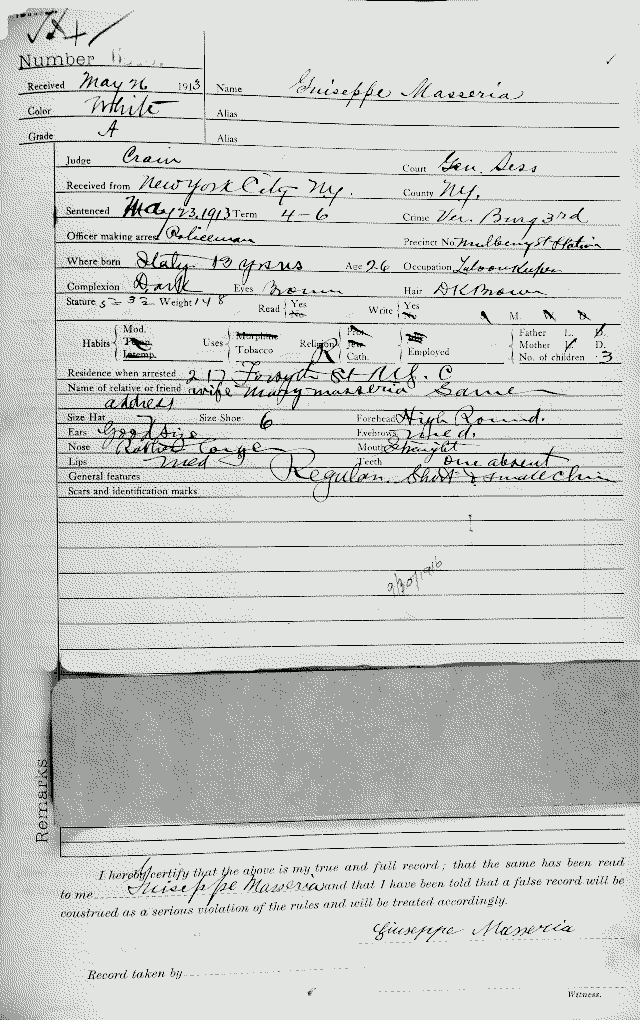 Number
Received May 26 1913 Name Guiseppe Masseria
Color White Alias
Grade A Alias
Judge Crain Court Gen. Sess
Received from New York City Ny. County Ny.
Sentenced May 23, 1913 Term 4-6 Crime Burg 3rd
Officer making arrest Policeman Precinct No. Mulberry St Station
Where born Italy 13 years Age 26 Occupation Saloon Keeper
Complexion Dark Eyes Brown Hair DK Brown
Stature 5 Weight 148 Read Yes No Write Yes No M.
Habits Mod. Intemp. Uses Morphine Tobacco Religion Cath. Employed Father L. D. Mother L. D. No. of children 3
Residence when arrested 217 Forsyth St N.Y. C
Name of relative or friend wife Mary Masseria Same
address
Size Hat 7 Size Shoe 6 Forehead High Round.
Ears Good Size Eyebrows med.
Nose Large Mouth Straight
Lips med Teeth one absent
General features Regular. Short & small chin
Scars and identification marks
9/30/1916
Remarks
I hereby certify that the above is my true and full record; that the same has been read
to me Guiseppe Masseria and that I have been told that a false record will be
construed as a serious violation of the rules and will be treated accordingly.
Giuseppe Masseria
Record taken by
Witness.